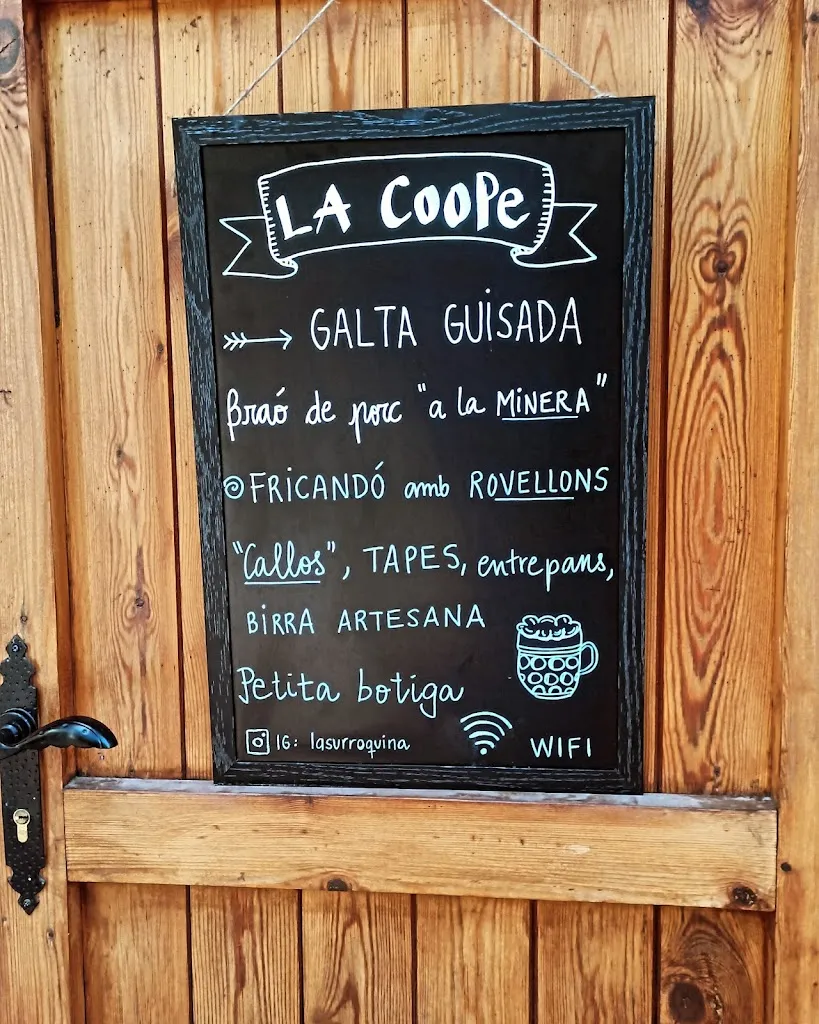 LA COOPe
GALTA GUISADA
Braó de porc "a la MINERA"
FRICANDÓ amb ROVELLONS
"Callos", TAPES, entrepans,
BIRRA ARTESANA
Petita botiga
IG: lasurroquina
WIFI